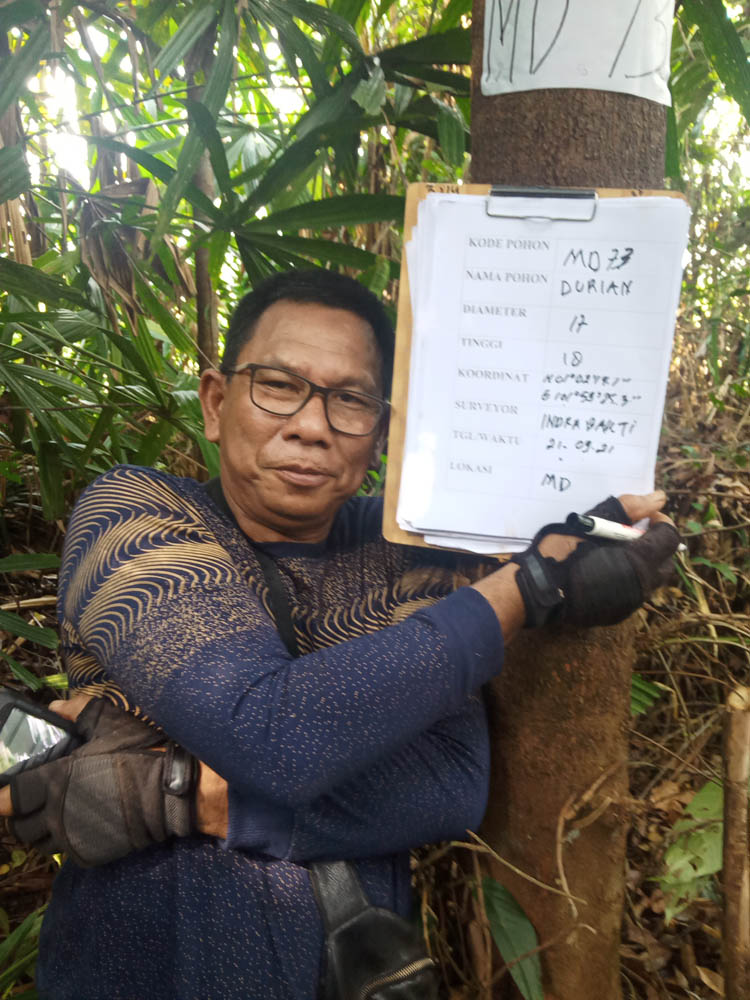 MD 73
KODE POHON MD73
NAMA POHON DURIAN
DIAMETER 17
TINGGI 18
KOORDINAT
SURVEYOR INDRA BAKTI
TGL/WAKTU 21.09.21
LOKASI MD